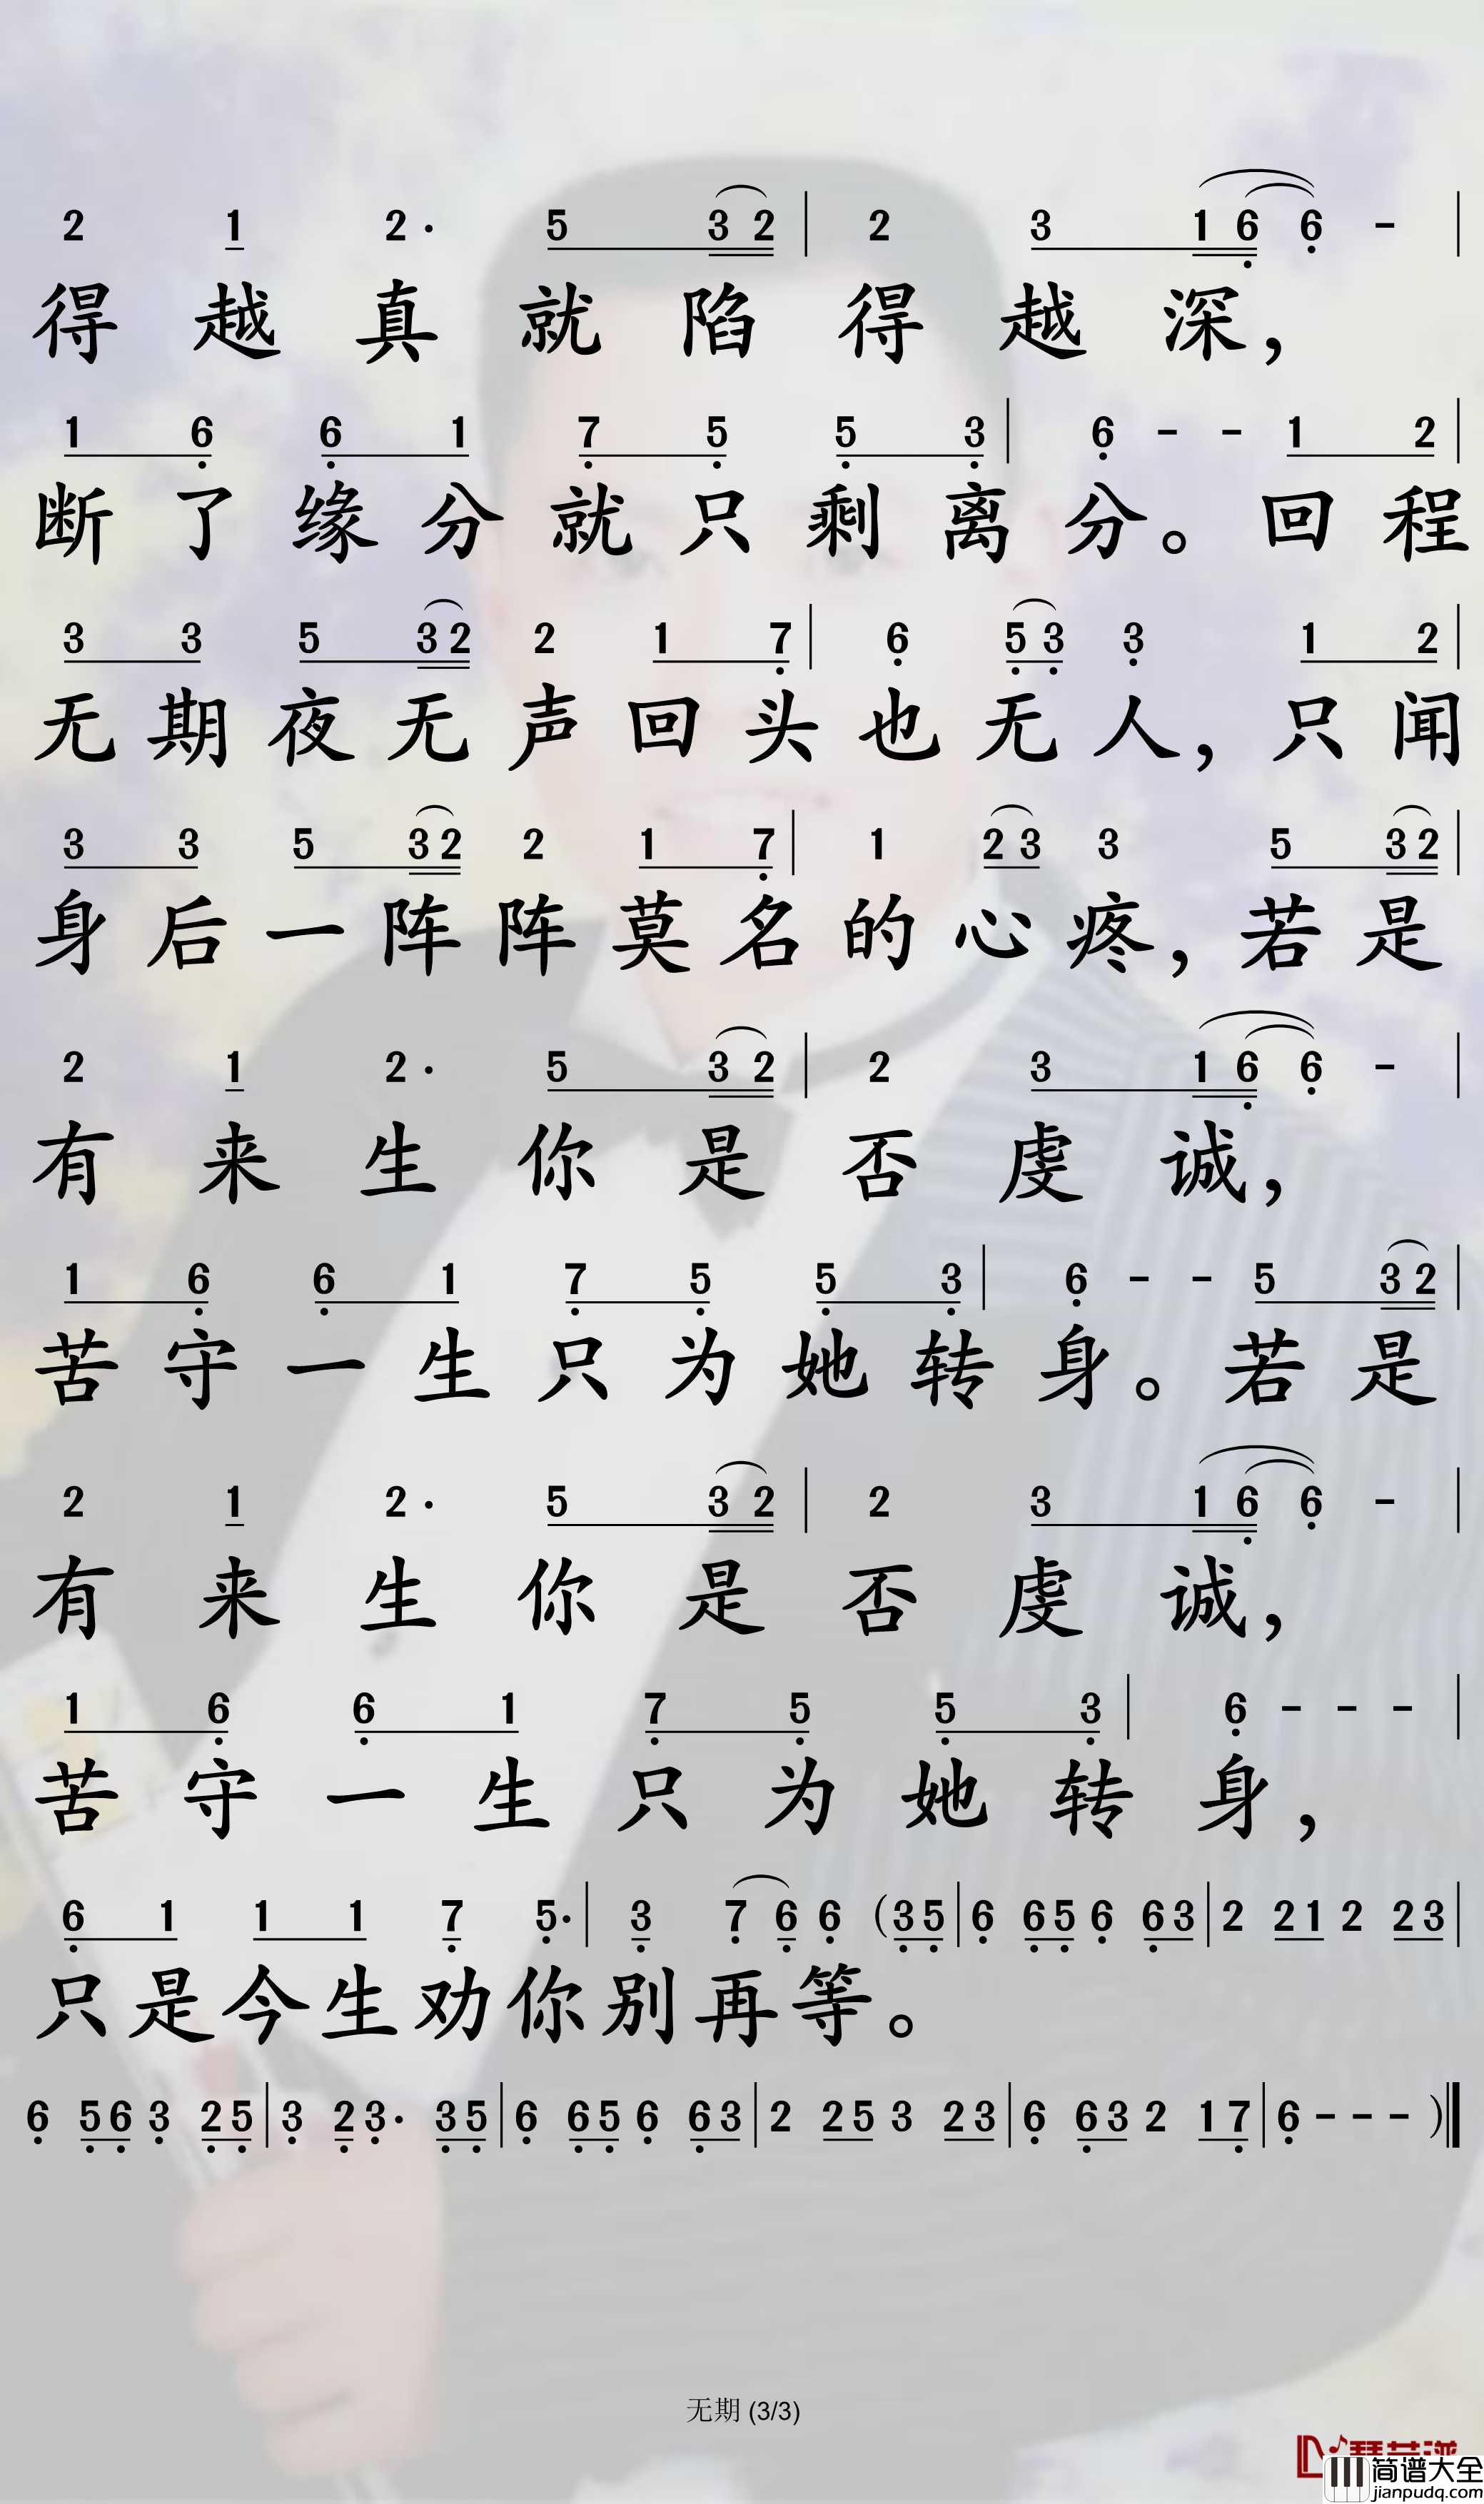 2 1 2· 5 3 2 | 2 3 1 6 6 - |
得越真就陷得越深，
1 6 6 1 7 5 5 3 | 6 - - 1 2 |
断了缘分就只剩离分。回程
3 3 5 3 2 2 1 7 | 6 5 3 3 1 2 |
无期夜无声回头也无人，只闻
3 3 5 3 2 2 1 7 | 1 2 3 3 5 3 2 |
身后一阵阵莫名的心疼，若是
2 1 2· 5 3 2 | 2 3 1 6 6 - |
有来生你是否虔诚，
1 6 6 1 7 5 5 3 | 6 - - 5 3 2 |
苦守一生只为她转身。若是
2 1 2· 5 3 2 | 2 3 1 6 6 - |
有来生你是否虔诚，
1 6 6 1 7 5 5 3 | 6 - - - |
苦守一生只为她转身，
6 1 1 1 7 5· | 3 7 6 6 (3 5 | 6 6 5 6 6 3 | 2 2 1 2 2 3 |
只是今生劝你别再等。
6 5 6 3 2 5 | 3 2 3· 3 5 | 6 6 5 6 6 3 | 2 2 5 3 2 3 | 6 6 3 2 1 7 | 6 - - - )
无期 (3/3)
简谱大全
jianpudq.com